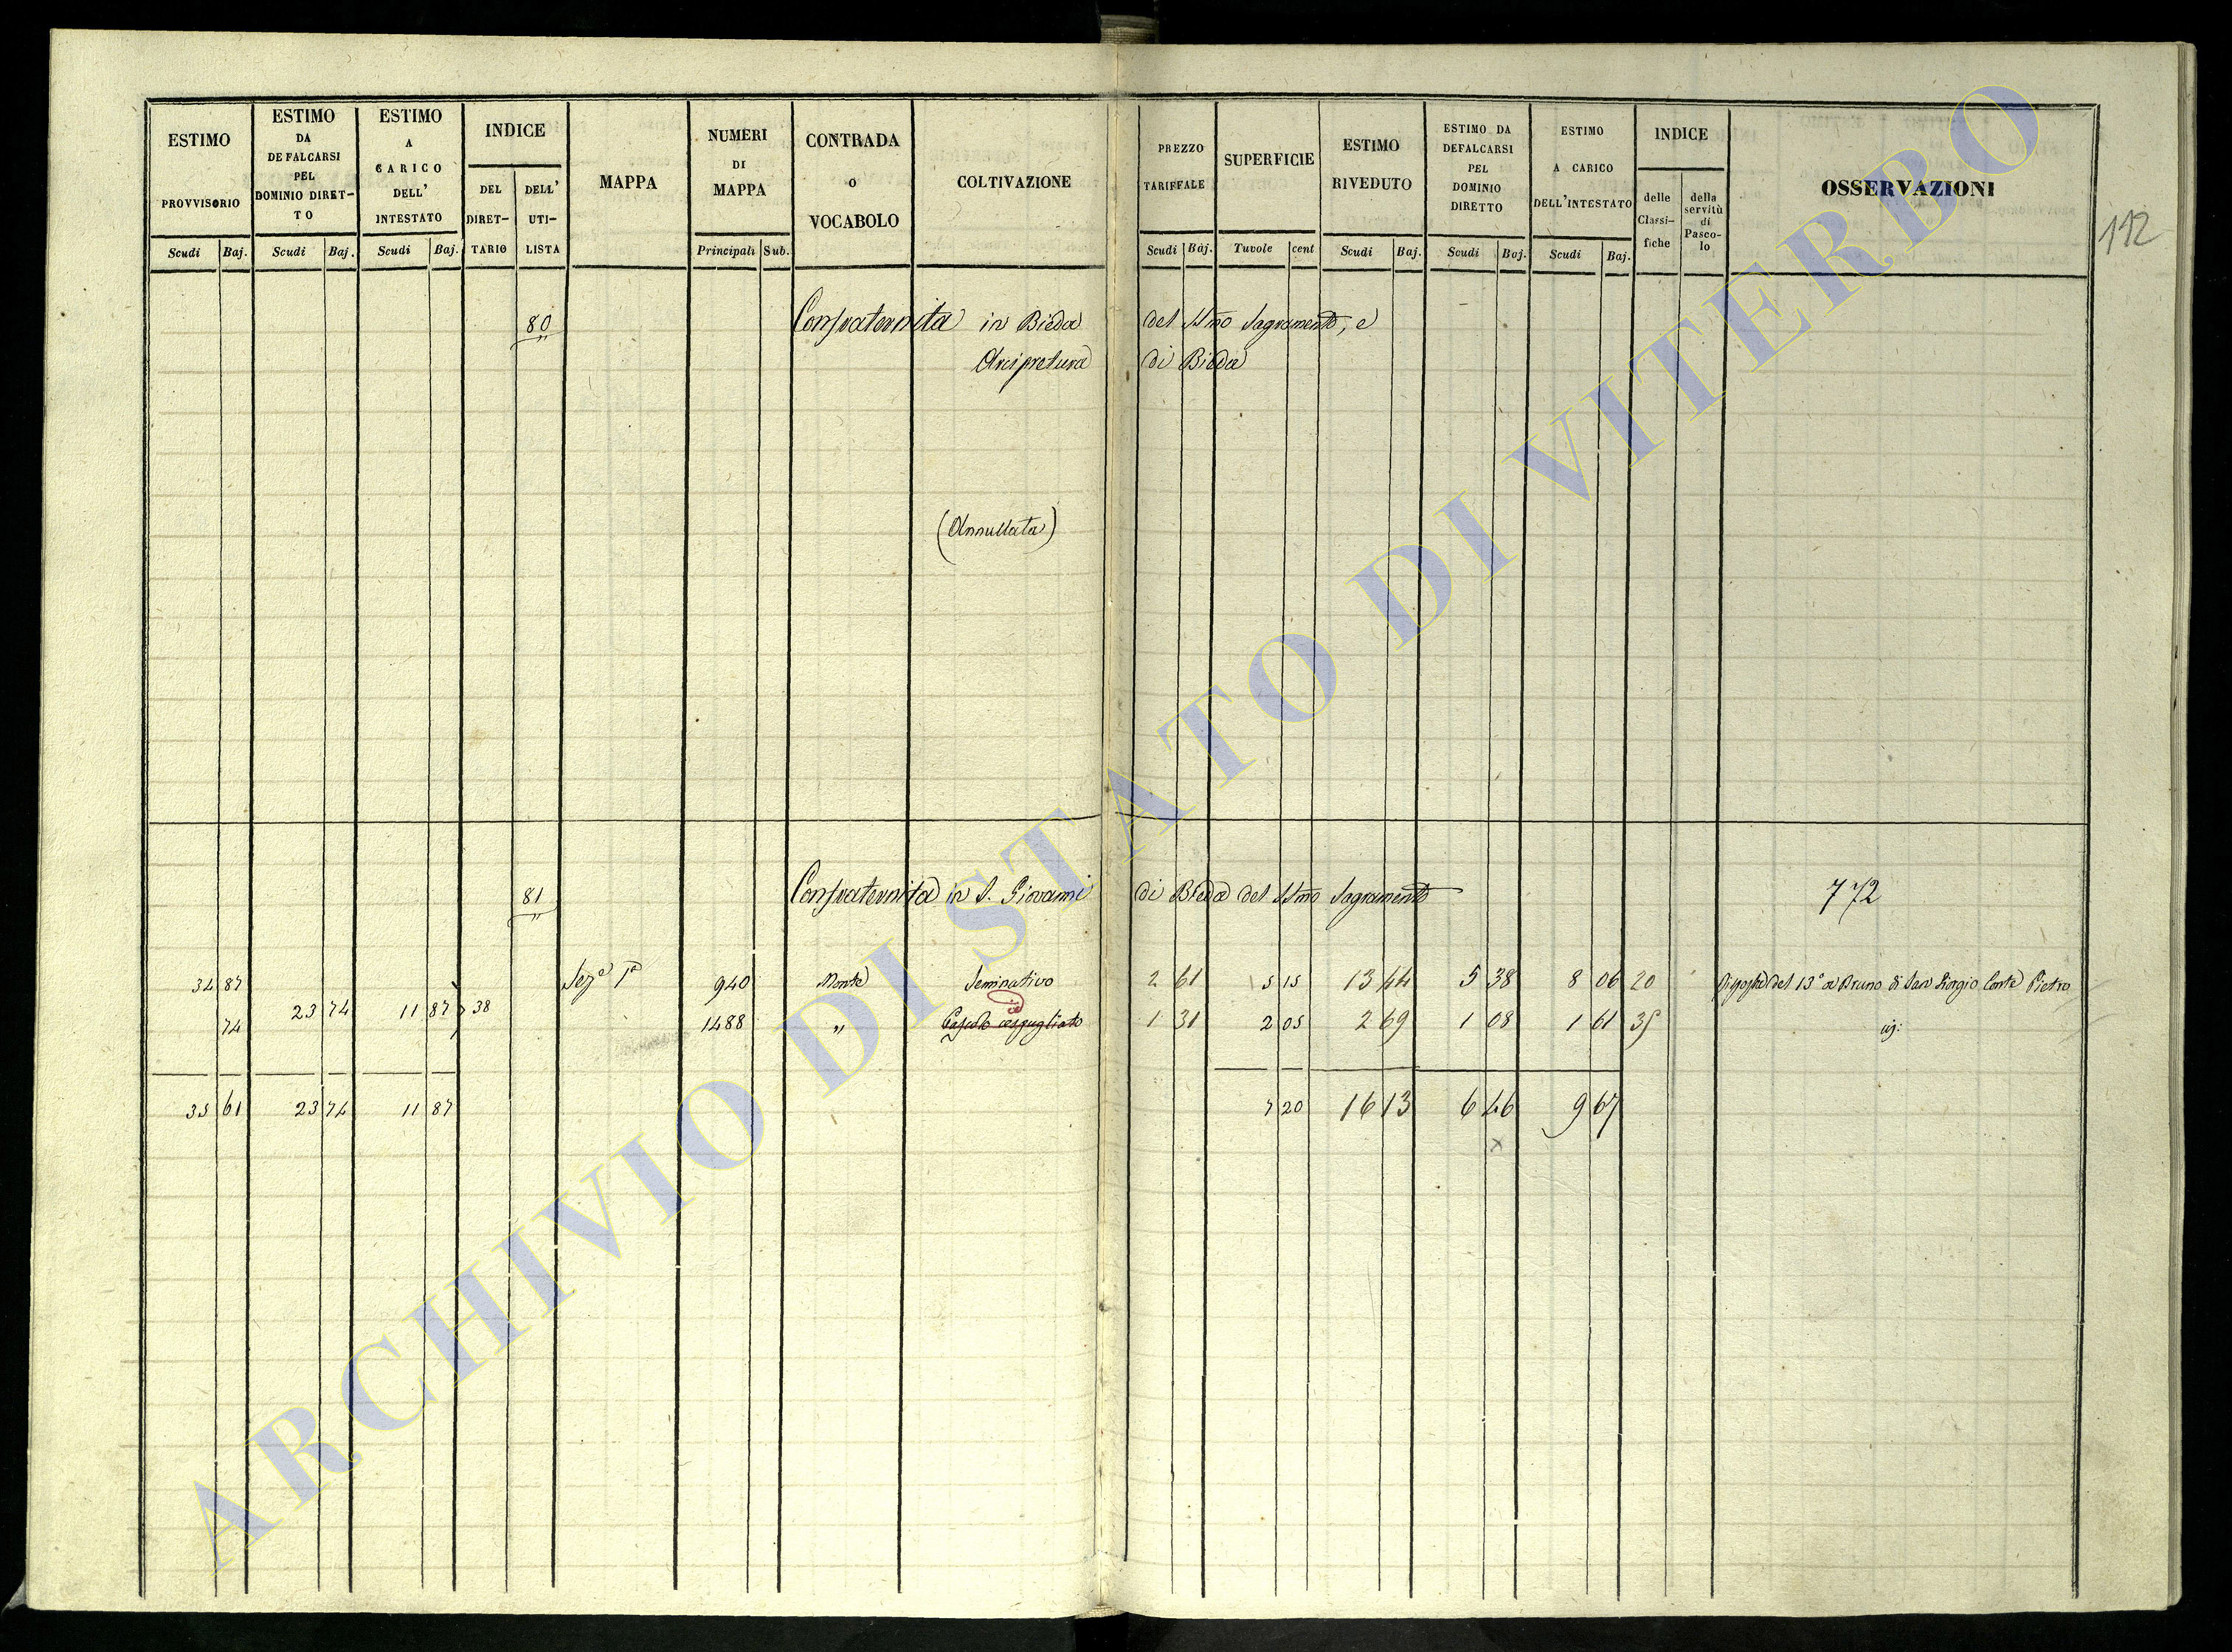 112
ESTIMO PROVVISORIO Scudi Baj.
ESTIMO DA DEFALCARSI PEL DOMINIO DIRET-TO Scudi Baj.
ESTIMO A CARICO DELL' INTESTATO Scudi Baj.
INDICE DEL DIRET-TARIO DELL' UTI-LISTA
MAPPA
NUMERI DI MAPPA Principali Sub.
CONTRADA O VOCABOLO
COLTIVAZIONE
PREZZO TARIFFALE Scudi Baj.
SUPERFICIE Tavole cent
ESTIMO RIVEDUTO Scudi Baj.
ESTIMO DA DEFALCARSI PEL DOMINIO DIRETTO Scudi Baj.
ESTIMO A CARICO DELL'INTESTATO Scudi Baj.
INDICE delle Classi-fiche della servitù di Pasco-lo
OSSERVAZIONI
80 Confraternita in Bieda del SSmo Sagramento, e
Arcipretura di Bieda
(Annullata)
81 Confraternita in S. Giovanni di Bieda del SSmo Sagramento 772
34 87 Seze Ia 940 Monte Seminativo 2 61 5 15 13 44 5 38 8 06 20 del 13° a Bruno di San Giorgio Conte Pietro
23 74 11 87 38
74 1488 " Pascolo cespugliato 1 31 2 05 2 69 1 08 1 61 35
35 61 23 74 11 87 7 20 16 13 6 46 9 67
x
ARCHIVIO DI STATO DI VITERBO